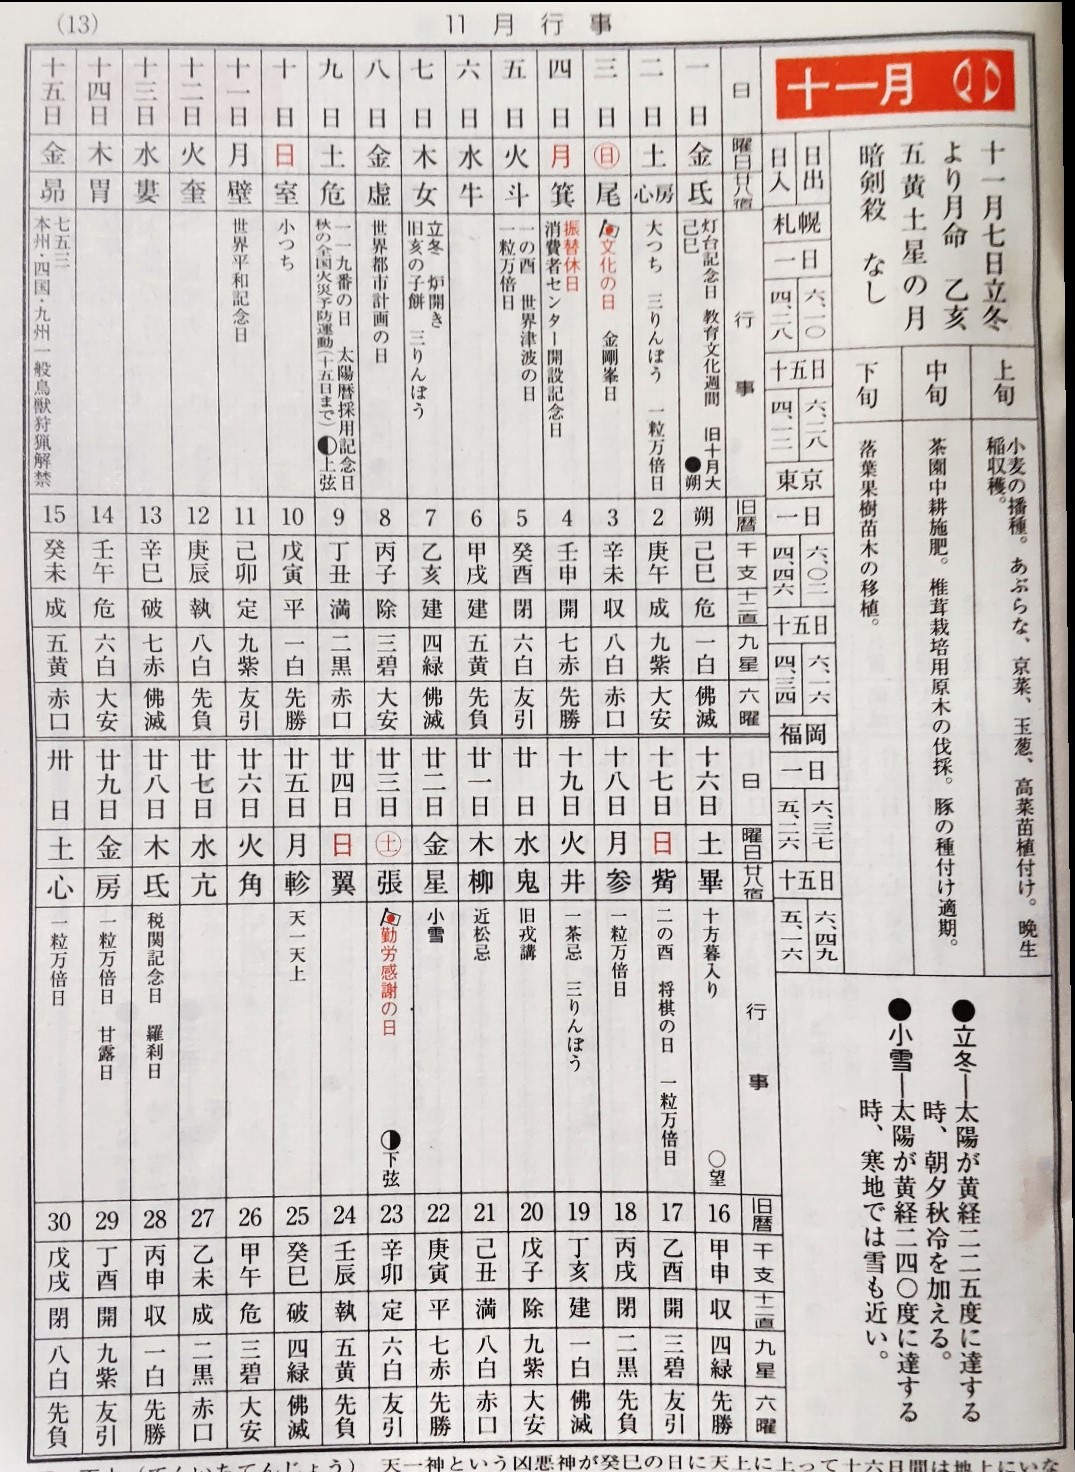 (13)
11月行事
十一月
十一月七日立冬
より月命 乙亥
五黄土星の月
暗剣殺 なし
上旬
小麦の播種。あぶらな、京菜、玉葱、高菜苗植付け。晩生
稲収穫。
中旬
茶園中耕施肥。椎茸栽培用原木の伐採。豚の種付け適期。
下旬
落葉果樹苗木の移植。
●立冬―太陽が黄経二二五度に達する
時、朝夕秋冷を加える。
●小雪―太陽が黄経二四〇度に達する
時、寒地では雪も近い。
日出 日入
札幌
一日
六、一〇 四、二八
十五日
六、二八 四、一二
東京
一日
六、〇二 四、四六
十五日
六、一六 四、三四
福岡
一日
六、三七 五、二六
十五日
六、四九 五、一六
日 曜日 廿八宿 行事 旧暦 干支 十二直 九星 六曜
一日 金 氐 灯台記念日 教育文化週間 旧十月大 己巳 ●朔 朔 己巳 危 一白 佛滅
二日 土 心房 大つち 三りんぼう 一粒万倍日 2 庚午 成 九紫 大安
三日 ㊐ 尾 文化の日 金剛峯日 3 辛未 収 八白 赤口
四日 月 箕 振替休日 消費者センター開設記念日 4 壬申 開 七赤 先勝
五日 火 斗 一の酉 世界津波の日 一粒万倍日 5 癸酉 閉 六白 友引
六日 水 牛 6 甲戌 建 五黄 先負
七日 木 女 立冬 炉開き 旧亥の子餅 三りんぼう 7 乙亥 建 四緑 佛滅
八日 金 虚 世界都市計画の日 8 丙子 除 三碧 大安
九日 土 危 一一九番の日 太陽暦採用記念日 秋の全国火災予防運動(十五日まで) ◐上弦 9 丁丑 満 二黒 赤口
十日 日 室 小つち 10 戊寅 平 一白 先勝
十一日 月 壁 世界平和記念日 11 己卯 定 九紫 友引
十二日 火 奎 12 庚辰 執 八白 先負
十三日 水 婁 13 辛巳 破 七赤 佛滅
十四日 木 胃 14 壬午 危 六白 大安
十五日 金 昴 七五三 本州・四国・九州一般鳥獣狩猟解禁 15 癸未 成 五黄 赤口
日 曜日 廿八宿 行事 旧暦 干支 十二直 九星 六曜
十六日 土 畢 十方暮入り 〇望 16 甲申 収 四緑 先勝
十七日 日 觜 二の酉 将棋の日 一粒万倍日 17 乙酉 開 三碧 友引
十八日 月 参 一粒万倍日 18 丙戌 閉 二黒 先負
十九日 火 井 一茶忌 三りんぼう 19 丁亥 建 一白 佛滅
廿日 水 鬼 旧戎講 20 戊子 除 九紫 大安
廿一日 木 柳 近松忌 21 己丑 満 八白 赤口
廿二日 金 星 小雪 22 庚寅 平 七赤 先勝
廿三日 ㊏ 張 勤労感謝の日 ◑下弦 23 辛卯 定 六白 友引
廿四日 日 翼 24 壬辰 執 五黄 先負
廿五日 月 軫 天一天上 25 癸巳 破 四緑 佛滅
廿六日 火 角 26 甲午 危 三碧 大安
廿七日 水 亢 27 乙未 成 二黒 赤口
廿八日 木 氐 税関記念日 羅刹日 28 丙申 収 一白 先勝
廿九日 金 房 一粒万倍日 甘露日 29 丁酉 開 九紫 友引
卅日 土 心 一粒万倍日 30 戊戌 閉 八白 先負
(てんいちてんじょう) 天一神という凶悪神が癸巳の日に天上に上って十六日間は地上にいな